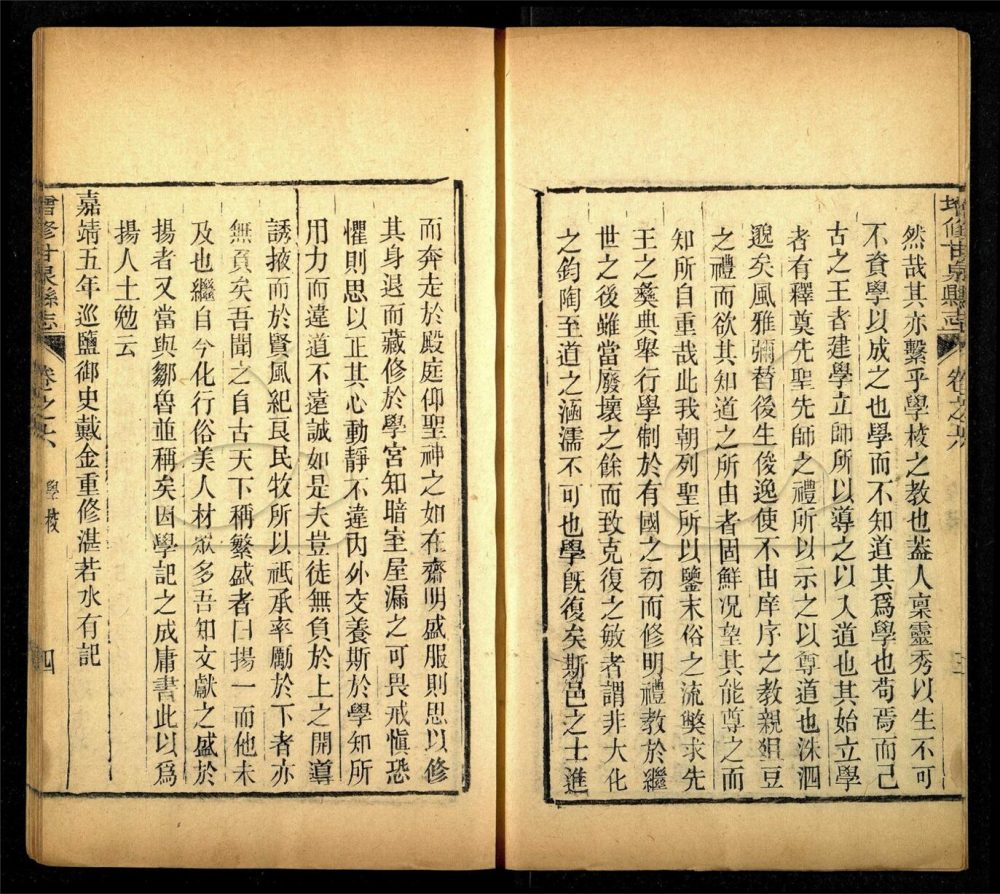 增修甘泉縣志
卷之六
然哉其亦繫乎學校之教也蓋人稟靈秀以生不可
不資學以成之也學而不知道其爲學也苟焉而已
古之王者建學立師所以導之以入道也其始立學
者有釋奠先聖先師之禮所以示之以尊道也洙泗
邈矣風雅彌替後生俊逸使不由庠序之教親俎豆
之禮而欲其知道之所由者固鮮况望其能尊之而
知所自重哉此我朝列聖所以鑒末俗之流獘求先
王之彝典舉行學制於有國之初而修明禮教於繼
世之後雖當廢壞之餘而致克復之敏者謂非大化
之鈞陶至道之涵濡不可也學旣復矣斯邑之士進
而奔走於殿庭仰聖神之如在齋明盛服則思以修
其身退而藏修於學宮知暗室屋漏之可畏戒慎恐
懼則思以正其心動靜不違內外交養斯於學知所
用力而違道不遠誠如是夫豈徒無負於上之開導
誘掖而於賢風紀良民牧所以祇承率勵於下者亦
無負矣吾聞之自古天下稱繁盛者曰揚一而他未
及也繼自今化行俗美人材衆多吾知文獻之盛於
揚者又當與鄒魯並稱矣因學記之成庸書此以爲
揚人士勉云
嘉靖五年巡鹽御史戴金重修湛若水有記
增修甘泉縣志
卷之六
學校
四